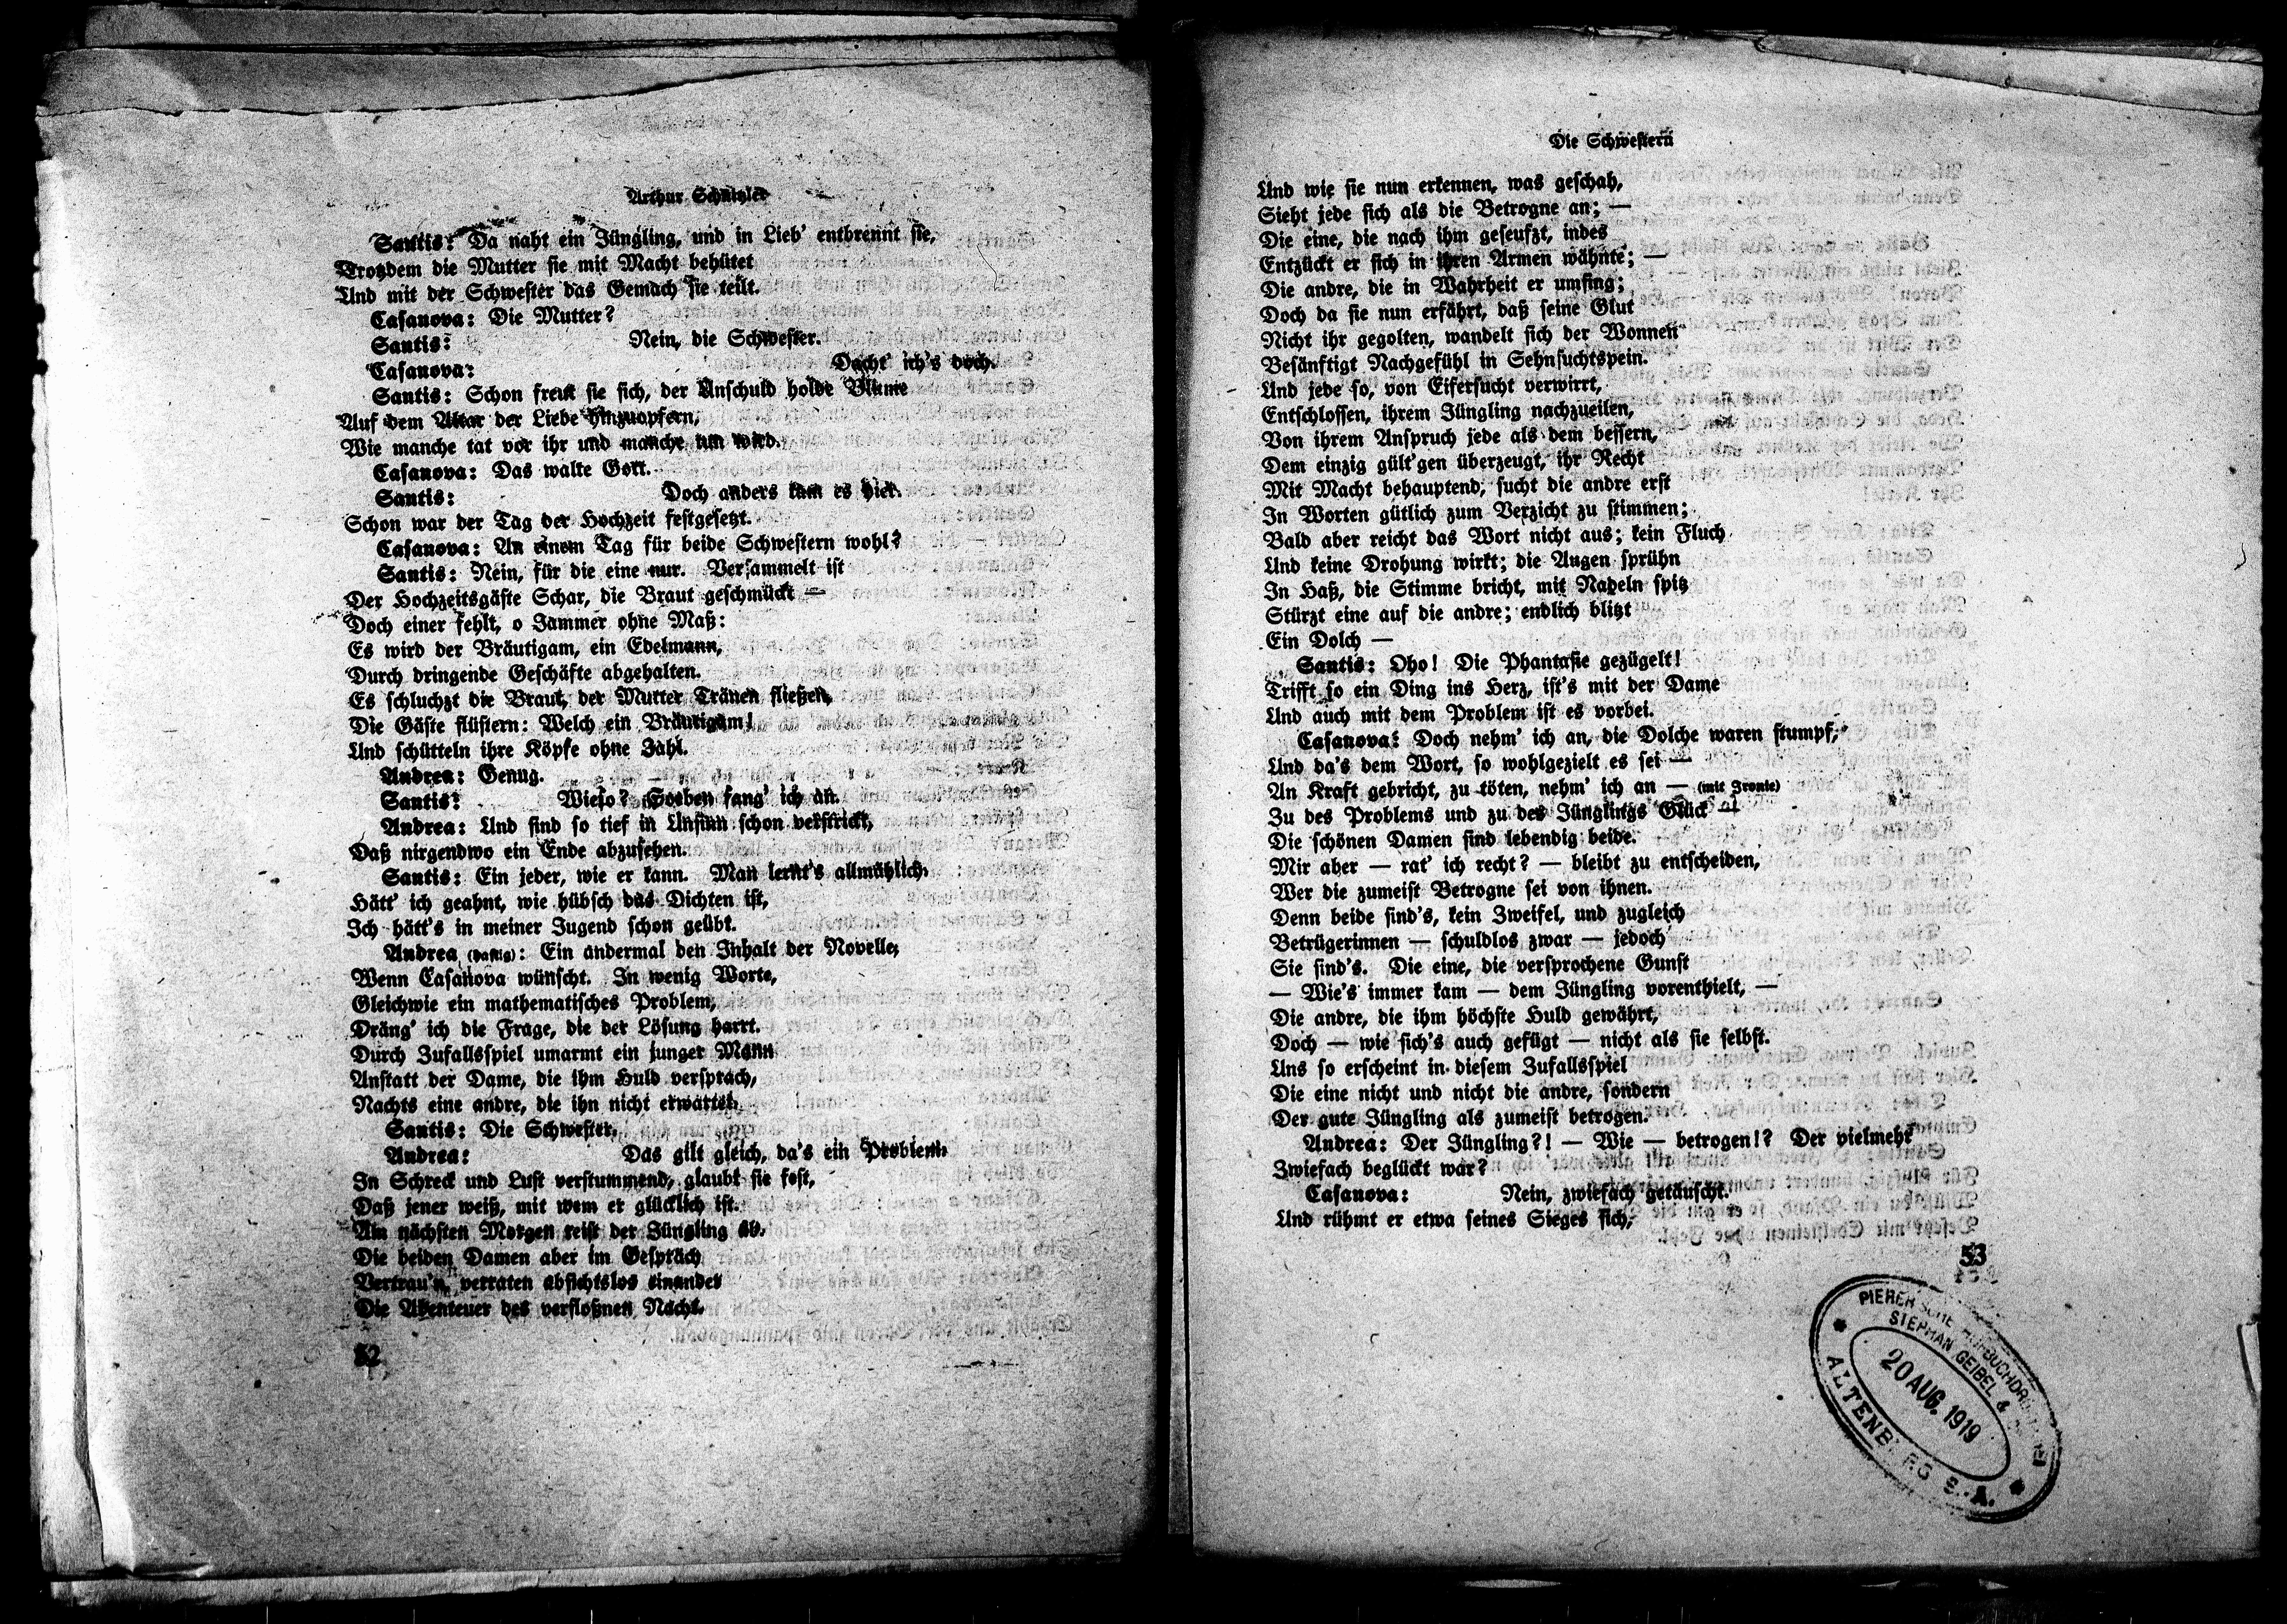 Arthur Schnitzler
Santis: Da naht ein Jüngling, und in Lieb' entbrennt sie,
Trotzdem die Mutter sie mit Macht behütet
Und mit der Schwester das Gemach sie teilt.
Casanova: Die Mutter?
Santis: Nein, die Schwester.
Casanova: Dacht' ich's doch.
Santis: Schon freut sie sich, der Unschuld holde Blume
Auf dem Altar der Liebe hinzuopfern,
Wie manche tat vor ihr und manche tun wird.
Casanova: Das walte Gott.
Santis: Doch anders kam es hier.
Schon war der Tag der Hochzeit festgesetzt.
Casanova: An einem Tag für beide Schwestern wohl?
Santis: Nein, für die eine nur. Versammelt ist
Der Hochzeitsgäste Schar, die Braut geschmückt —
Doch einer fehlt, o Jammer ohne Maß:
Es wird der Bräutigam, ein Edelmann,
Durch dringende Geschäfte abgehalten.
Es schluchzt die Braut, der Mutter Tränen fließen,
Die Gäste flüstern: Welch ein Bräutigam!
Und schütteln ihre Köpfe ohne Zahl.
Andrea: Genug.
Santis: Wieso? Soeben fang' ich an.
Andrea: Und sind so tief in Unsinn schon verstrickt,
Daß nirgendwo ein Ende abzusehen.
Santis: Ein jeder, wie er kann. Man lernt's allmählich.
Hätt' ich geahnt, wie hübsch das Dichten ist,
Ich hätt's in meiner Jugend schon geübt.
Andrea (hastig): Ein andermal den Inhalt der Novelle,
Wenn Casanova wünscht. In wenig Worte,
Gleichwie ein mathematisches Problem,
Dräng' ich die Frage, die der Lösung harrt.
Durch Zufallsspiel umarmt ein junger Mann
Anstatt der Dame, die ihm Huld versprach,
Nachts eine andre, die ihn nicht erwartet.
Santis: Die Schwester.
Andrea: Das gilt gleich, da's ein Problem.
In Schreck und Lust verstummend, glaubt sie fest,
Daß jener weiß, mit wem er glücklich ist.
Am nächsten Morgen reist der Jüngling ab.
Die beiden Damen aber im Gespräch
Vertrau'n, verraten absichtslos einander
Die Abenteuer des verfloßnen Nacht.
52
Die Schwestern
Und wie sie nun erkennen, was geschah,
Sieht jede sich als die Betrogne an; —
Die eine, die nach ihm geseufzt, indes
Entzückt er sich in ihren Armen wähnte; —
Die andre, die in Wahrheit er umfing;
Doch da sie nun erfährt, daß seine Glut
Nicht ihr gegolten, wandelt sich der Wonnen
Besänftigt Nachgefühl in Sehnsuchtspein.
Und jede so, von Eifersucht verwirrt,
Entschlossen, ihrem Jüngling nachzueilen,
Von ihrem Anspruch jede als dem bessern,
Dem einzig gült'gen überzeugt, ihr Recht
Mit Macht behauptend, sucht die andre erst
In Worten gütlich zum Verzicht zu stimmen;
Bald aber reicht das Wort nicht aus; kein Fluch
Und keine Drohung wirkt; die Augen sprühn
In Haß, die Stimme bricht, mit Nadeln spitz
Stürzt eine auf die andre; endlich blitzt
Ein Dolch —
Santis: Oho! Die Phantasie gezügelt!
Trifft so ein Ding ins Herz, ist's mit der Dame
Und auch mit dem Problem ist es vorbei.
Casanova: Doch nehm' ich an, die Dolche waren stumpf,
Und da's dem Wort, so wohlgezielt es sei —
An Kraft gebricht, zu töten, nehm' ich an — (mit Ironie)
Zu des Problems und zu des Jünglings Glück —
Die schönen Damen sind lebendig beide.
Mir aber — rat' ich recht? — bleibt zu entscheiden,
Wer die zumeist Betrogne sei von ihnen.
Denn beide sind's, kein Zweifel, und zugleich
Betrügerinnen — schuldlos zwar — jedoch
Sie sind's. Die eine, die versprochene Gunst
— Wie's immer kam — dem Jüngling vorenthielt, —
Die andre, die ihm höchste Huld gewährt,
Doch — wie sich's auch gefügt — nicht als sie selbst.
Uns so erscheint in diesem Zufallsspiel
Die eine nicht und nicht die andre, sondern
Der gute Jüngling als zumeist betrogen.
Andrea: Der Jüngling?! — Wie — betrogen!? Der vielmehr
Zwiefach beglückt war?
Casanova: Nein, zwiefach getäuscht.
Und rühmt er etwa seines Sieges sich,
53
PIERER'SCHE HOFBUCHDRUCKEREI
STEPHAN GEIBEL &
20 AUG. 1919
ALTENBURG S.-A.